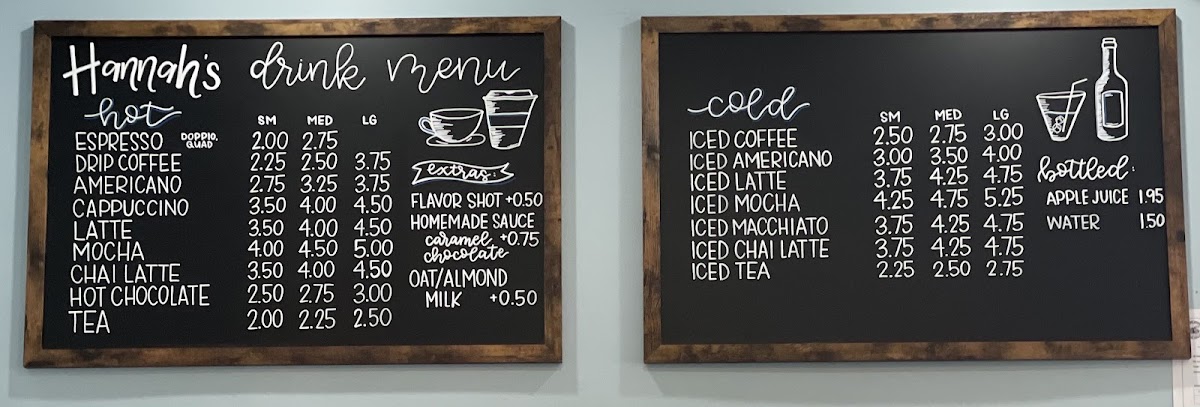 Hannah's drink menu
hot
SM MED LG
ESPRESSO DOPPIO, QUAD 2.00 2.75
DRIP COFFEE 2.25 2.50 3.75
AMERICANO 2.75 3.25 3.75
CAPPUCCINO 3.50 4.00 4.50
LATTE 3.50 4.00 4.50
MOCHA 4.00 4.50 5.00
CHAI LATTE 3.50 4.00 4.50
HOT CHOCOLATE 2.50 2.75 3.00
TEA 2.00 2.25 2.50
extras:
FLAVOR SHOT +0.50
HOMEMADE SAUCE
caramel +0.75
chocolate
OAT/ALMOND
MILK +0.50
cold
SM MED LG
ICED COFFEE 2.50 2.75 3.00
ICED AMERICANO 3.00 3.50 4.00
ICED LATTE 3.75 4.25 4.75
ICED MOCHA 4.25 4.75 5.25
ICED MACCHIATO 3.75 4.25 4.75
ICED CHAI LATTE 3.75 4.25 4.75
ICED TEA 2.25 2.50 2.75
bottled:
APPLE JUICE 1.95
WATER 1.50